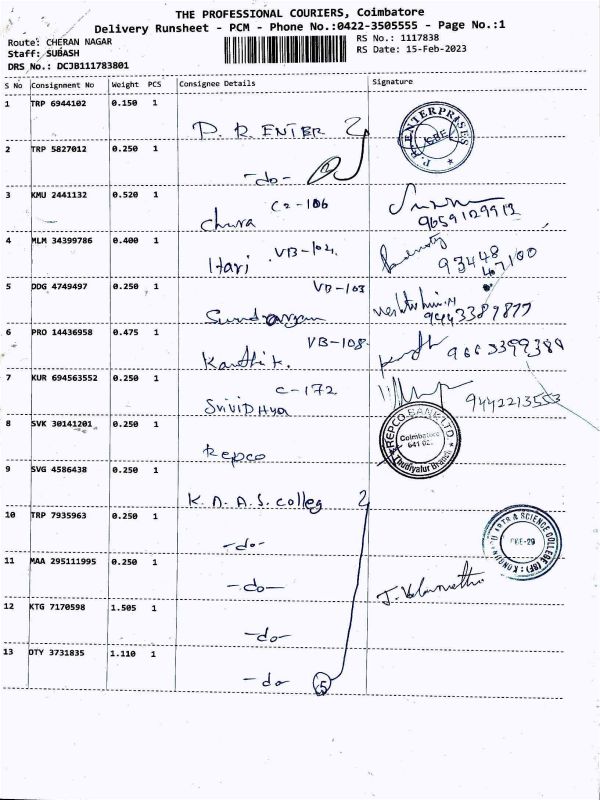 THE PROFESSIONAL COURIERS, Coimbatore
Delivery Runsheet - PCM - Phone No.:0422-3505555 - Page No.:1
Route: CHERAN NAGAR RS No.: 1117838
Staff: SUBASH RS Date: 15-Feb-2023
DRS No.: DCJB111783801
S No Consignment No Weight PCS Consignee Details Signature
1 TRP 6944102 0.150 1 P. R ENTER ENTERPRISES CBE
2 TRP 5827012 0.250 1 -do- 2
3 KMU 2441132 0.520 1 C2-106 9659129912
4 MLM 34399786 0.400 1 Hari VB-104 93448 47100
5 DDG 4749497 0.250 1 VB-103 9443389877
6 PRO 14436958 0.475 1 Karthik. VB-108
7 KUR 694563552 0.250 1 SriviDhya C-172 9442213553
8 SVK 30141201 0.250 1 Repco REPCO BANK LTD Coimbatore Thudiyalur Branch
9 SVG 4586438 0.250 1 K. A. A. S. Colleg
10 TRP 7935963 0.250 1 -do- ARTS & SCIENCE COLLEGE CBE-29
11 MAA 295111995 0.250 1 -do-
12 KTG 7170598 1.505 1 -do-
13 OTY 3731835 1.110 1 -do- 5